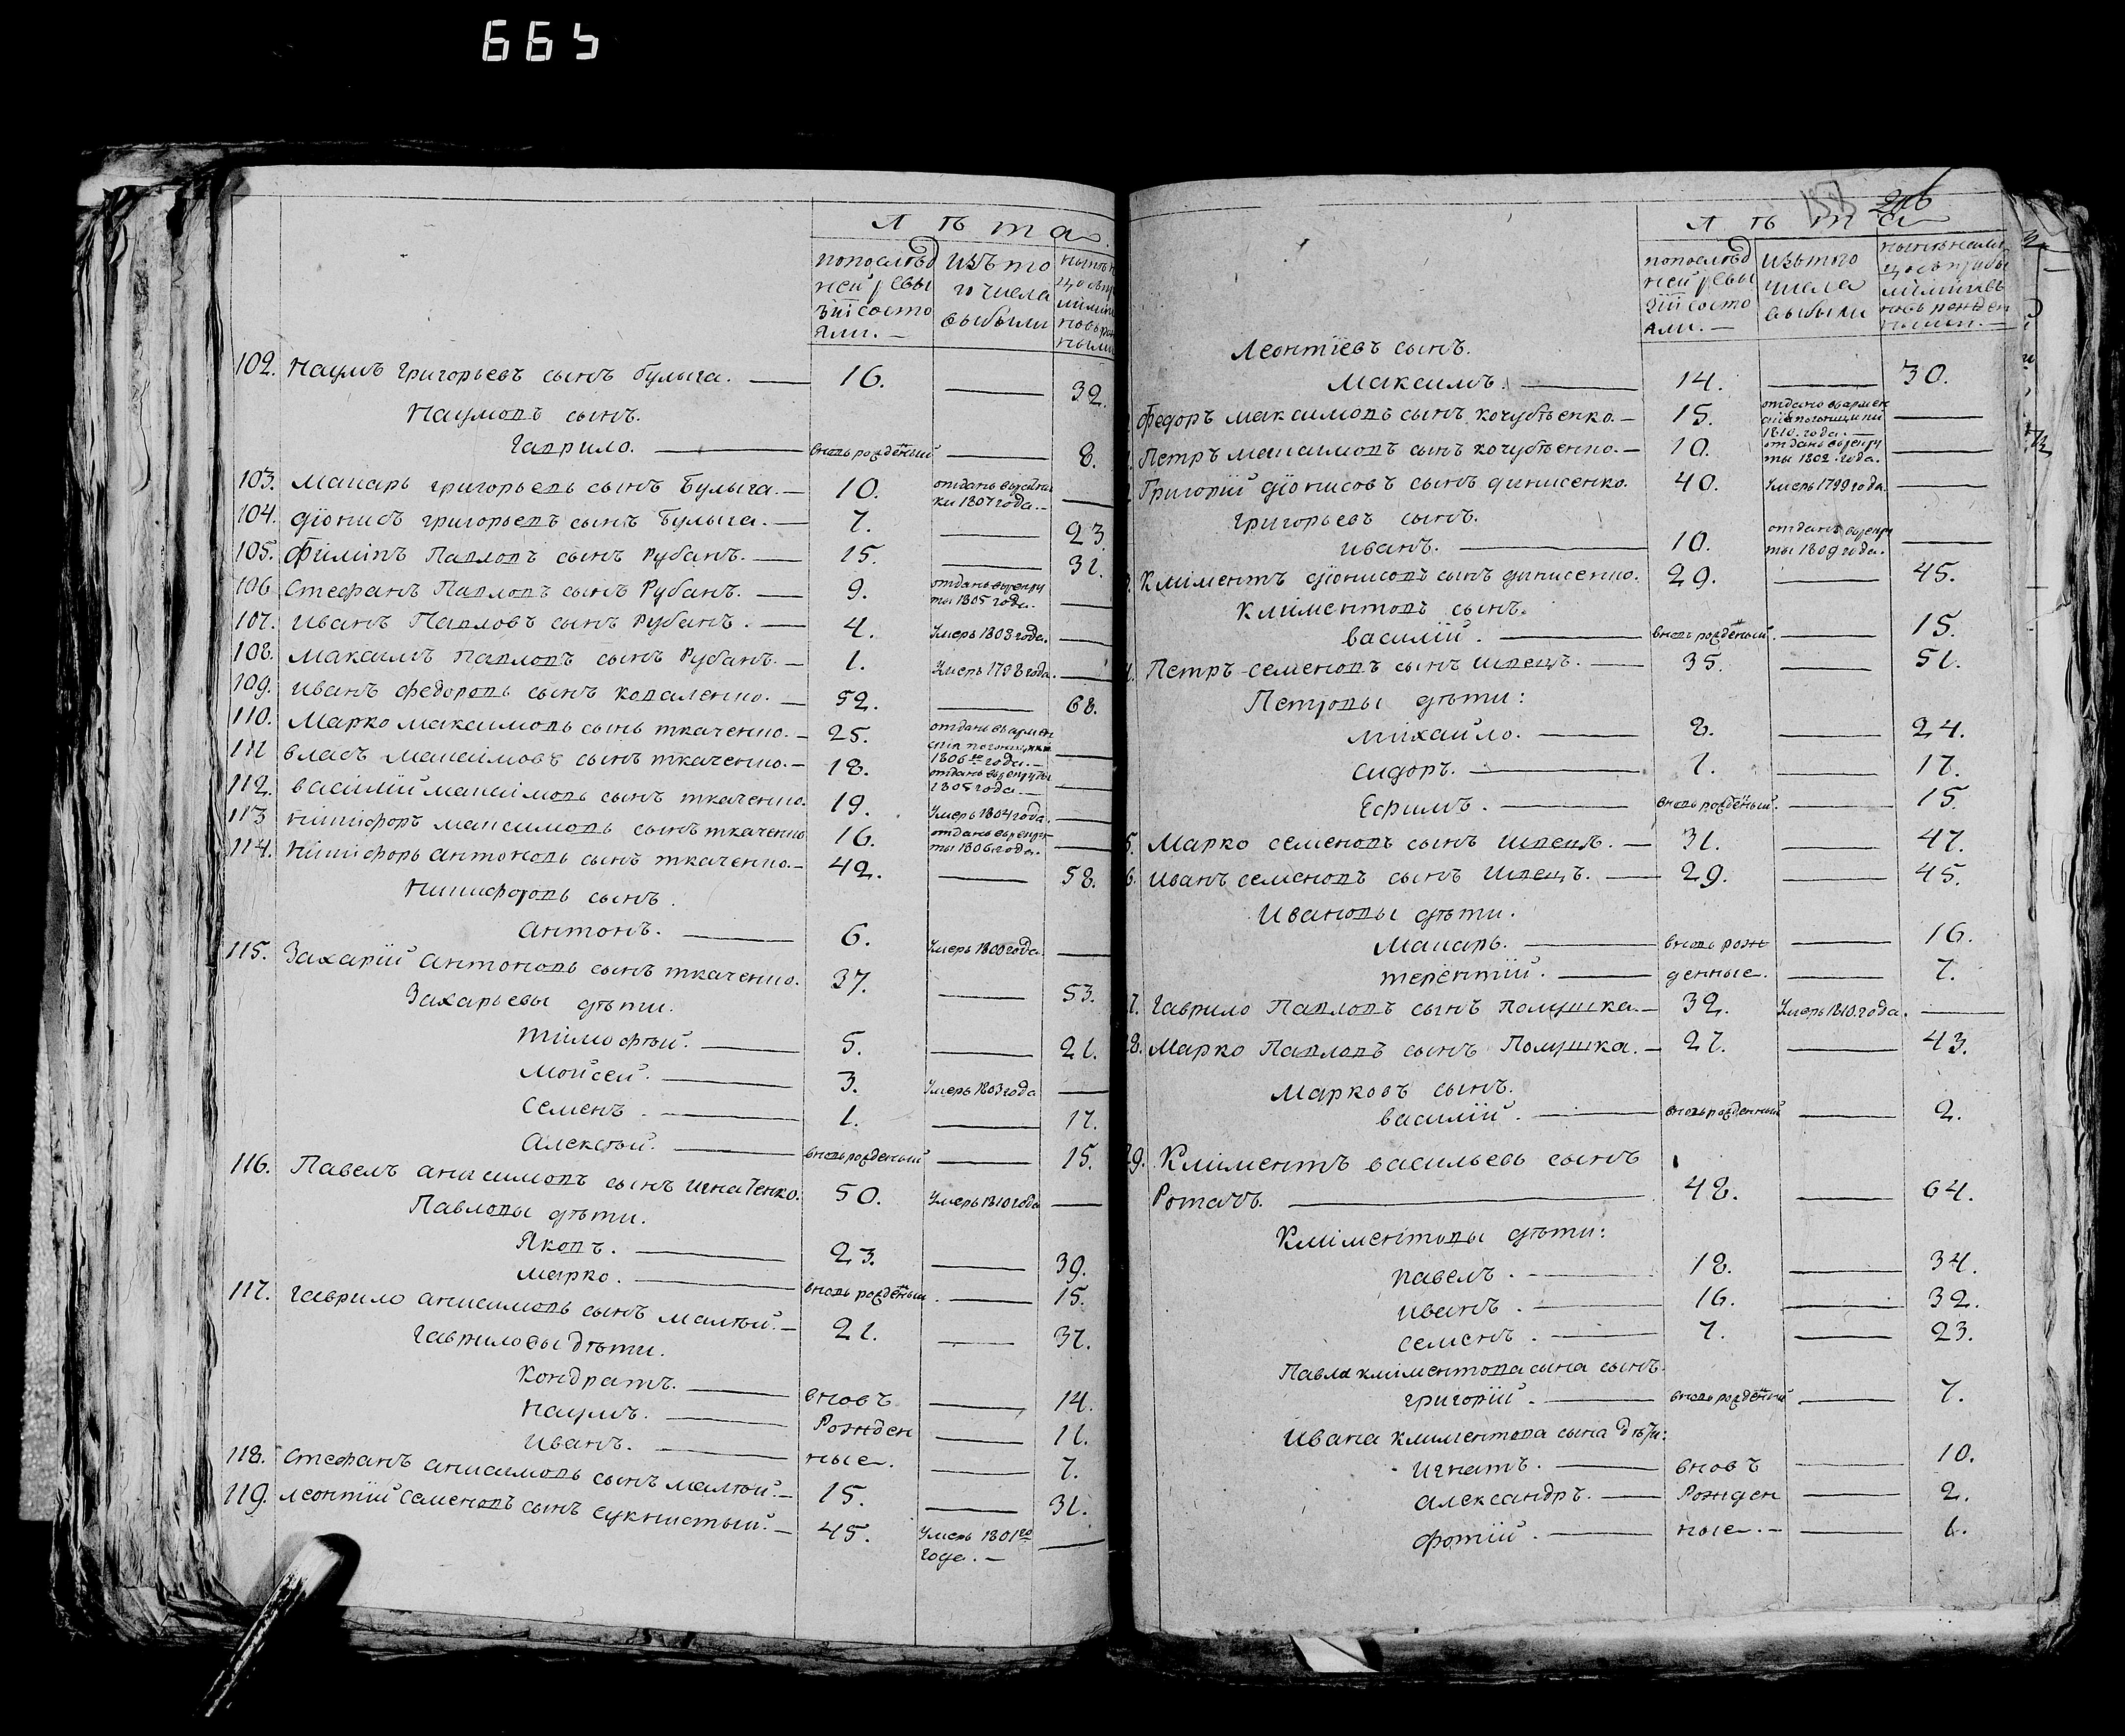 665
Лѣта.
по послѣд
ней реви
зіи состо
яли. —
изъ то
го числа
выбыли
102. Наумъ Григорьевъ сынъ Булыга. — 16. — 32.
Наумовъ сынъ.
Гаврило. — вновь рожденый — 8.
103. Макаръ Григорьевъ сынъ Булыга. — 10. отданъ въ рекру
ты 1807 года. —
104. Діонисъ Григорьевъ сынъ Булыга. — 7. — 23.
105. Филипъ Павловъ сынъ Рубанъ. — 15. — 31.
106. Стефанъ Павловъ сынъ Рубанъ. — 9. отданъ въ рекру
ты 1805 года. —
107. Иванъ Павловъ сынъ Рубанъ. — 4. Умеръ 1808 года. —
108. Максимъ Павловъ сынъ Рубанъ. — 1. Умеръ 1798 года. —
109. Иванъ Федоровъ сынъ Коваленко. — 52. — 68.
110. Марко Максимовъ сынъ Ткаченко. — 25. отданъ въ армей
скія погонщики
1806го года. —
111. Власъ Максимовъ сынъ Ткаченко. — 18. отданъ въ рекруты
1805 года. —
112. Василій Максимовъ сынъ Ткаченко. 19. Умеръ 1804 года. —
113. Никифоръ Максимовъ сынъ Ткаченко 16. отданъ въ рекру
ты 1806 года. —
114. Никифоръ Антоновъ сынъ Ткаченко. — 42. — 58.
Никифоровъ сынъ.
Антонъ. — 6. Умеръ 1800 года. —
115. Захарій Антоновъ сынъ Ткаченко. 37. — 53.
Захарьевы дѣти.
Тимофѣй. — 5. — 21.
Мойсей. — 3. Умеръ 1803 года —
Семенъ. — 1. — 17.
Алексѣй. — вновь рожденый — 15.
116. Павелъ Анисимовъ сынъ Игнатенко. 50. Умеръ 1810 года —
Павловы дѣти.
Яковъ. — 23. — 39.
Марко. — вновь рожденый. — 15.
117. Гаврило Анисимовъ сынъ Малѣй. — 21. — 37.
Гавриловы дѣти.
Кондратъ. — вновъ — 14.
Наумъ. — Рожден — 11.
Иванъ. — ные. — 7.
118. Стефанъ Анисимовъ сынъ Малѣй. — 15. — 31.
119. Леонтій Семеновъ сынъ Сукнистый. — 45. Умеръ 1801го
года. —
216
Лѣта
по послѣд
ней реви
зіи состо
яли. —
изъ того
числа
выбыли
Леонтіевъ сынъ.
Максимъ. — 14. — 30.
Федоръ Максимовъ сынъ Кочубѣенко. — 15. отданъ въ армей
скія погонщики
1810. года. —
Петръ Максимовъ сынъ Кочубѣенко. — 10. отданъ въ рекру
ты 1802 года. —
Григорій Діонисовъ сынъ Динисенко. 40. Умеръ 1799 года. —
Григорьевъ сынъ.
Иванъ. — 10. отданъ въ рекру
ты 1809 года. —
Климентъ Діонисовъ сынъ Динисенко. 29. — 45.
Климентовъ сынъ.
Василій. — вновь рожденый. — 15.
Петръ Семеновъ сынъ Швецъ. — 35. — 51.
Петровы дѣти:
Михайло. — 8. — 24.
Сидоръ. — 1. — 17.
Ефимъ. — вновь рожденый. — 15.
5. Марко Семеновъ сынъ Швецъ. — 31. — 47.
6. Иванъ Семеновъ сынъ Швецъ. — 29. — 45.
Ивановы дѣти.
Макаръ. — вновь рож — 16.
Терентій. — денные. — 7.
7. Гаврило Павловъ сынъ Полушка. — 32. Умеръ 1810. года. —
28. Марко Павловъ сынъ Полушка. — 27. — 43.
Марковъ сынъ.
Василій. — вновь рожденный — 2.
29. Климентъ Васильевъ сынъ
Ротачъ. — 48. — 64.
Климентовы дѣти:
Павелъ. — 18. — 34.
Иванъ. — 16. — 32.
Семенъ. — 7. — 23.
Павла Климентова сына сынъ.
Григорій. — вновь рожденый — 7.
Ивана Климентова сына дѣти:
Игнатъ. — вновъ — 10.
Александръ. — Рожден — 2.
Фотій. — ные. — — 1.